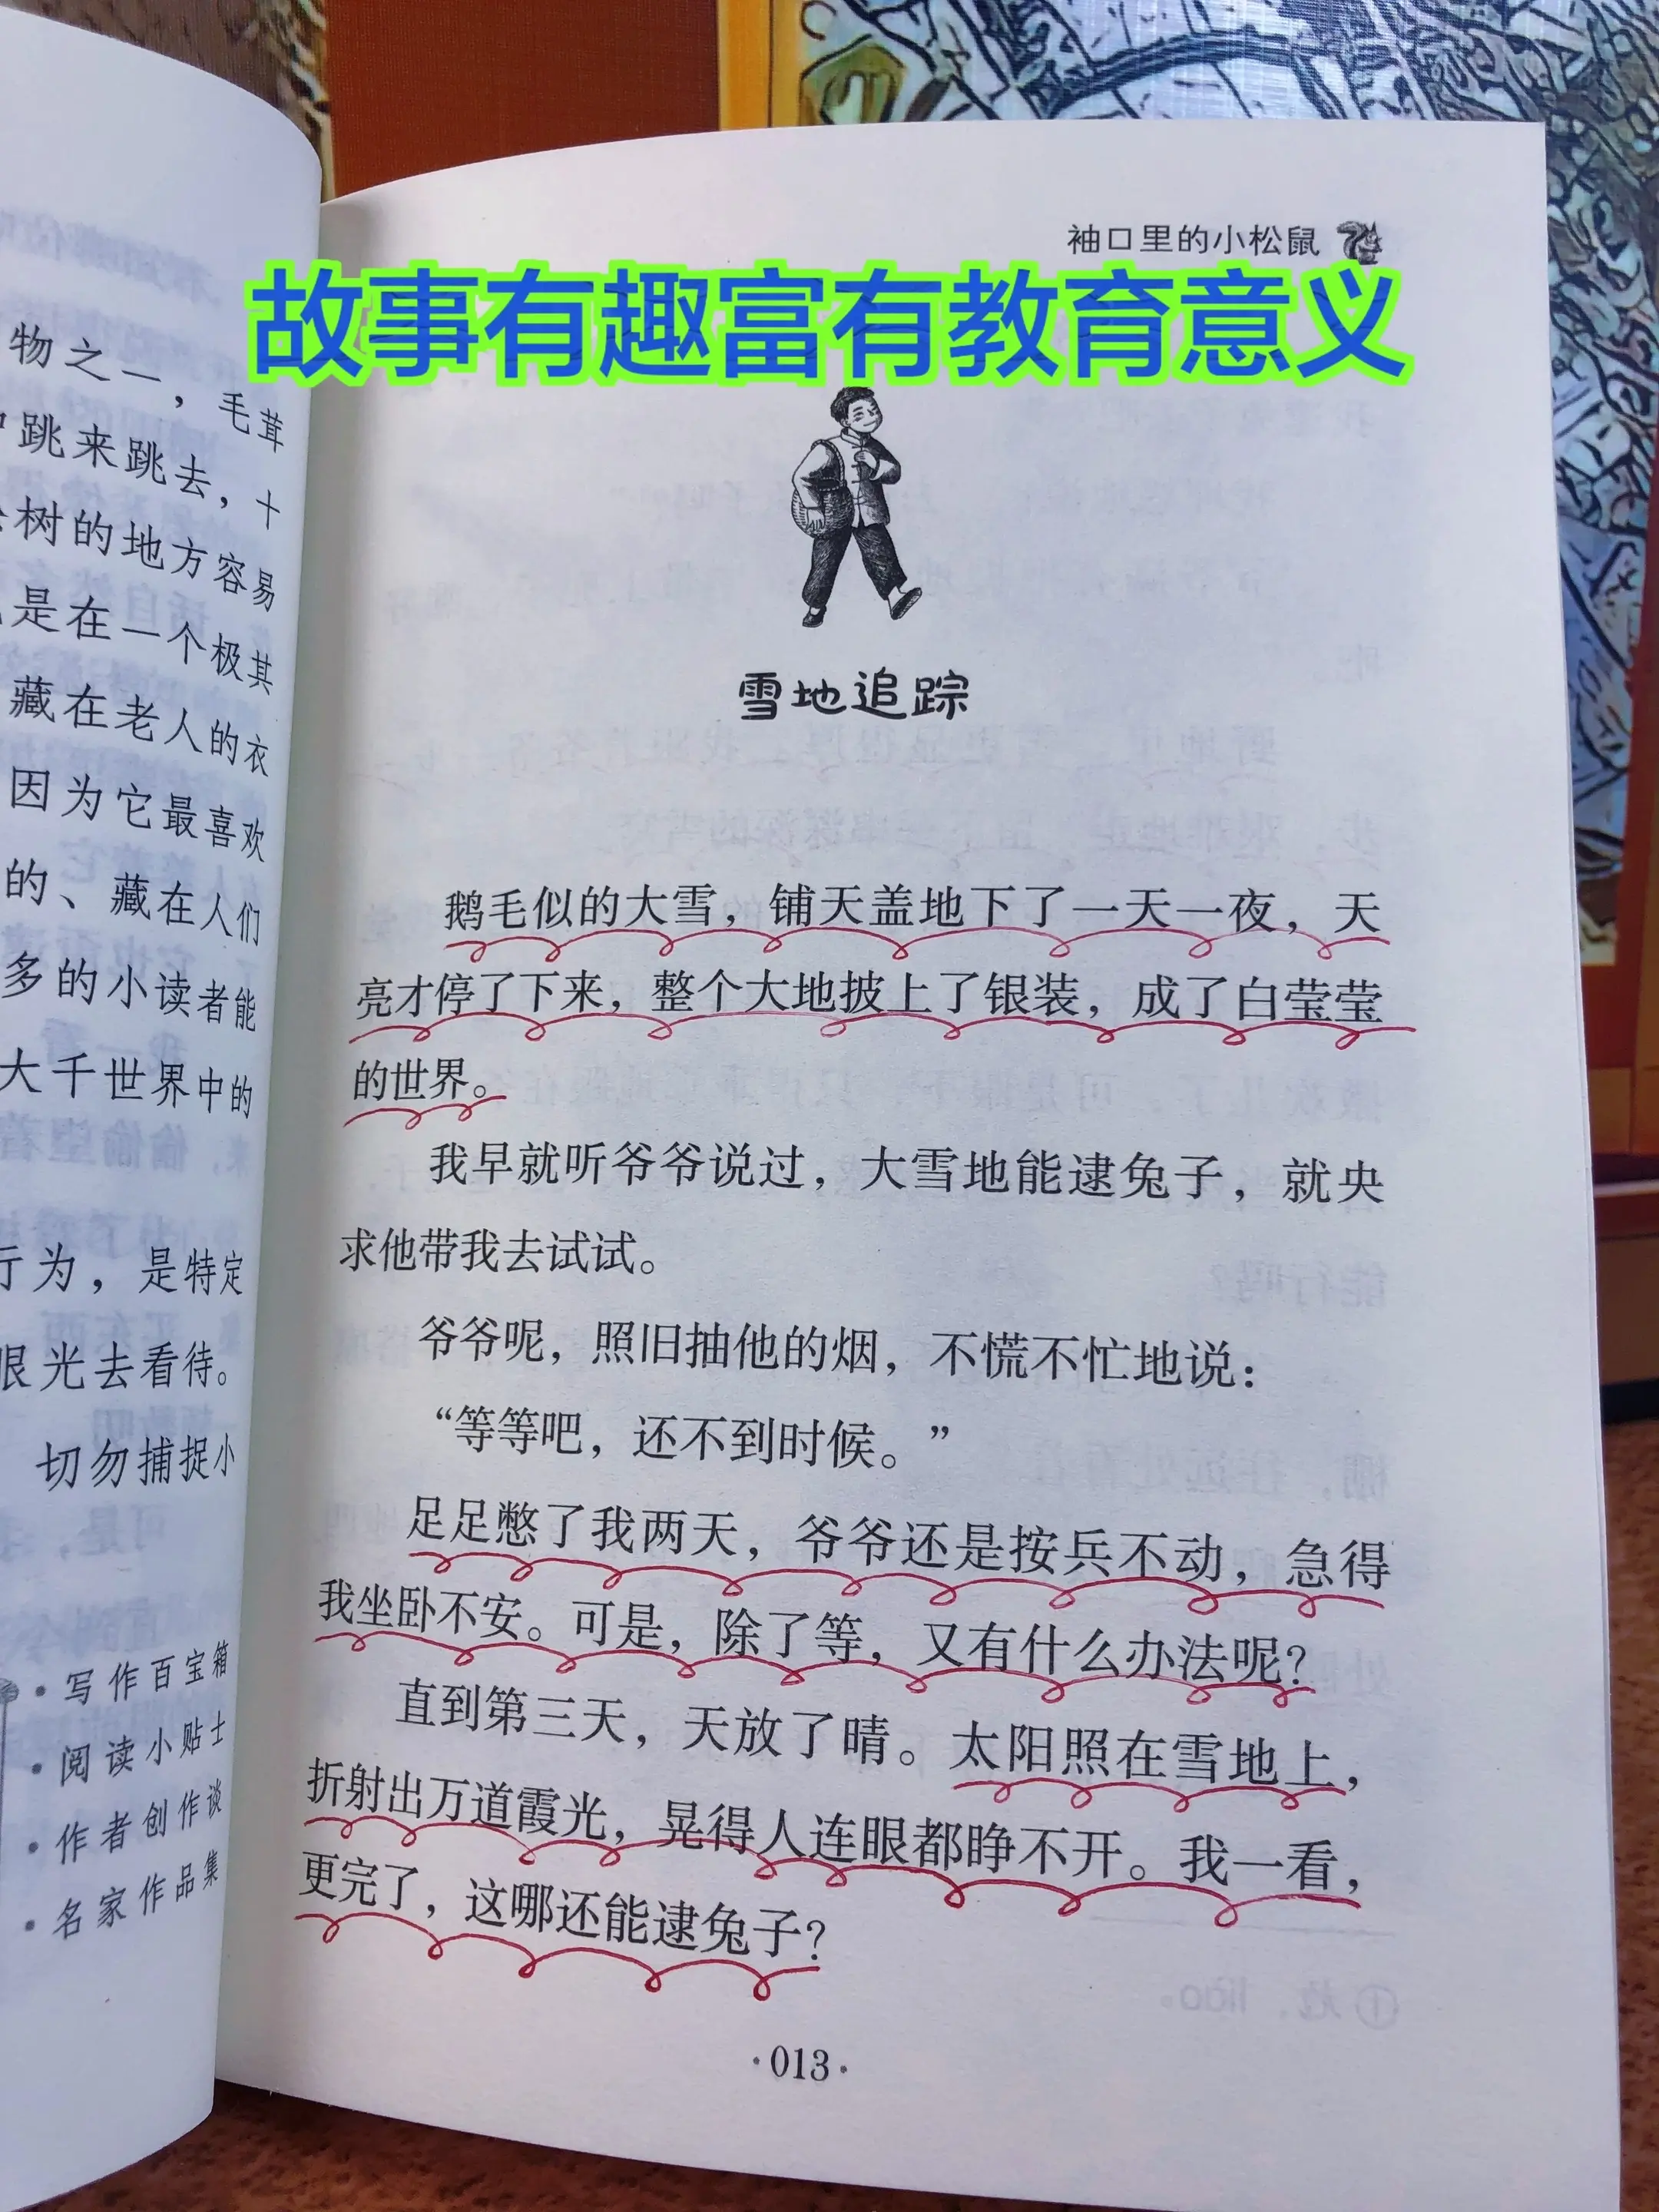 物之一，毛茸
跳来跳去，十
树的地方容易
是在一个极其
藏在老人的衣
因为它最喜欢
的、藏在人们
多的小读者能
大千世界中的
行为，是特定
眼光去看待。
切勿捕捉小
·写作百宝箱
·阅读小贴士
·作者创作谈
·名家作品集
袖口里的小松鼠
故事有趣富有教育意义
雪地追踪
鹅毛似的大雪，铺天盖地下了一天一夜，天
亮才停了下来，整个大地披上了银装，成了白莹莹
的世界。
我早就听爷爷说过，大雪地能逮兔子，就央
求他带我去试试。
爷爷呢，照旧抽他的烟，不慌不忙地说：
“等等吧，还不到时候。”
足足憋了我两天，爷爷还是按兵不动，急得
我坐卧不安。可是，除了等，又有什么办法呢？
直到第三天，天放了晴。太阳照在雪地上，
折射出万道霞光，晃得人连眼都睁不开。我一看，
更完了，这哪还能逮兔子？
·013·